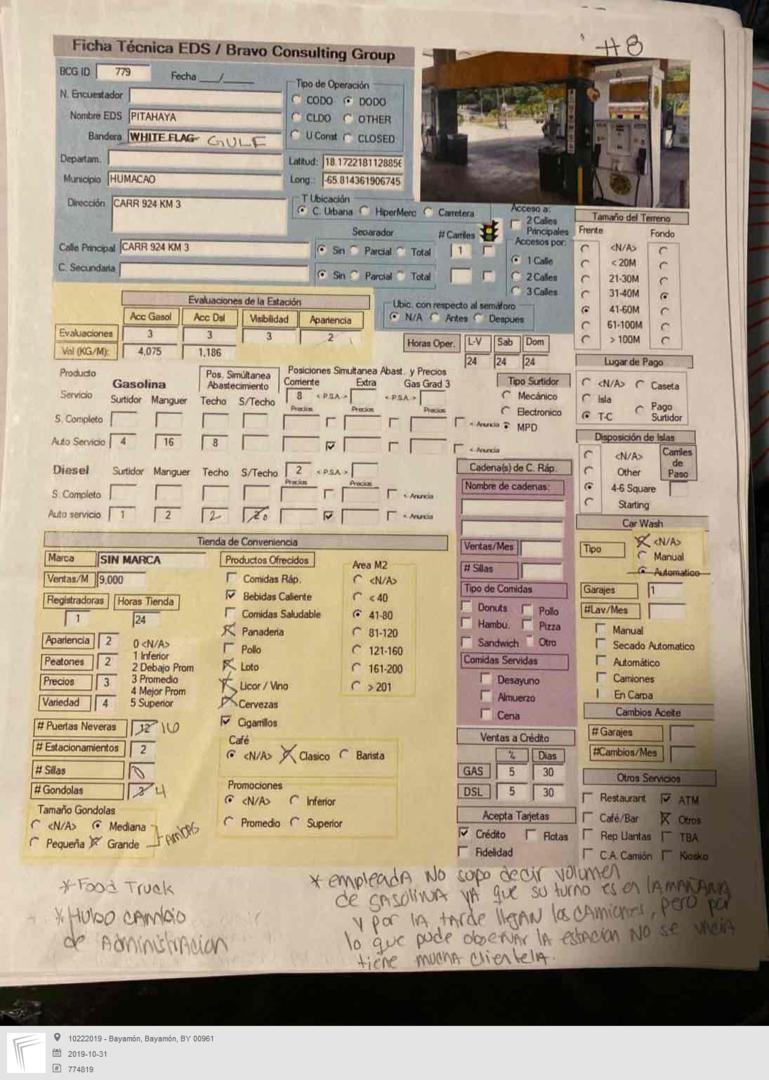 #8
Ficha Técnica EDS / Bravo Consulting Group
BCG ID 779 Fecha ___/___
N. Encuestador
Nombre EDS PITAHAYA
Bandera WHITE FLAG GULF
Departam.
Municipio HUMACAO
Dirección CARR 924 KM 3
Calle Principal CARR 924 KM 3
C. Secundaria
Tipo de Operación
CODO DODO
CLDO OTHER
U Const CLOSED
Latitud: 18.172218112885€
Long.: -65.814361906745
T Ubicación
C. Urbana HiperMerc Carretera
Separador # Carriles
Sin Parcial Total 1
Sin Parcial Total
Acceso a:
2 Calles
Principales
Accesos por:
1 Calle
2 Calles
3 Calles
Ubic. con respecto al semáforo
N/A Antes Despues
Tamaño del Terreno
Frente Fondo
<N/A>
< 20M
21-30M
31-40M
41-60M
61-100M
> 100M
Evaluaciones de la Estación
Acc Gasol Acc Dsl Visibilidad Apariencia
Evaluaciones 3 3 3 2
Vol (KG/M): 4,075 1,186
Horas Oper. L-V Sab Dom
24 24 24
Lugar de Pago
<N/A> Caseta
Isla
T-C Pago
Surtidor
Producto
Servicio
Gasolina
Surtidor Manguer
Pos. Simúltanea
Abastecimiento
Techo S/Techo
Posiciones Simultanea Abast. y Precios
Corriente Extra Gas Grad 3
8 < P.S.A. > < P.S.A. >
Precios Precios Precios
S. Completo < Anuncia
Auto Servicio 4 16 8 < Anuncia
Tipo Surtidor
Mecánico
Electronico
MPD
Disposición de Islas
<N/A>
Other
4-6 Square
Starting
Carriles
de
Paso
Diesel Surtidor Manguer Techo S/Techo 2 < P.S.A. >
Precios Precios
S. Completo < Anuncia
Auto servicio 1 2 2 < Anuncia
Cadena(s) de C. Ráp.
Nombre de cadenas:
Ventas/Mes
# Sillas
Tipo de Comidas
Donuts Pollo
Hambu. Pizza
Sandwich Otro
Comidas Servidas
Desayuno
Almuerzo
Cena
Car Wash
Tipo <N/A>
Manual
Automatico
Garajes 1
#Lav/Mes
Manual
Secado Automatico
Automático
Camiones
En Carpa
Cambios Aceite
# Garajes
#Cambios/Mes
Tienda de Conveniencia
Marca SIN MARCA
Ventas/M 9,000
Registradoras Horas Tienda
1 24
Apariencia 2
Peatones 2
Precios 3
Variedad 4
0 <N/A>
1 Inferior
2 Debajo Prom
3 Promedio
4 Mejor Prom
5 Superior
# Puertas Neveras 12 10
# Estacionamientos 2
# Sillas 0
# Gondolas 4
Tamaño Gondolas
<N/A> Mediana
Pequeña Grande
AMBAS
Productos Ofrecidos
Comidas Ráp.
Bebidas Caliente
Comidas Saludable
Panaderia
Pollo
Loto
Licor / Vino
Cervezas
Cigarrillos
Area M2
<N/A>
< 40
41-80
81-120
121-160
161-200
> 201
Café
<N/A> Clasico Barista
Promociones
<N/A> Inferior
Promedio Superior
Ventas a Crédito
% Dias
GAS 5 30
DSL 5 30
Acepta Tarjetas
Crédito Flotas
Fidelidad
Otros Servicios
Restaurant ATM
Café/Bar Otros
Rep Llantas TBA
C.A. Camión Kiosko
*Food Truck
*Hubo cambio
de Administracion
* empleada NO supo decir volumen
de gasolina ya que su turno es en la mañana
y por la tarde llegan los camiones, pero por
lo que pude observar la estacion NO se vacia
tiene mucha clientela.
10222019 - Bayamón, Bayamón, BY 00961
2019-10-31
774819